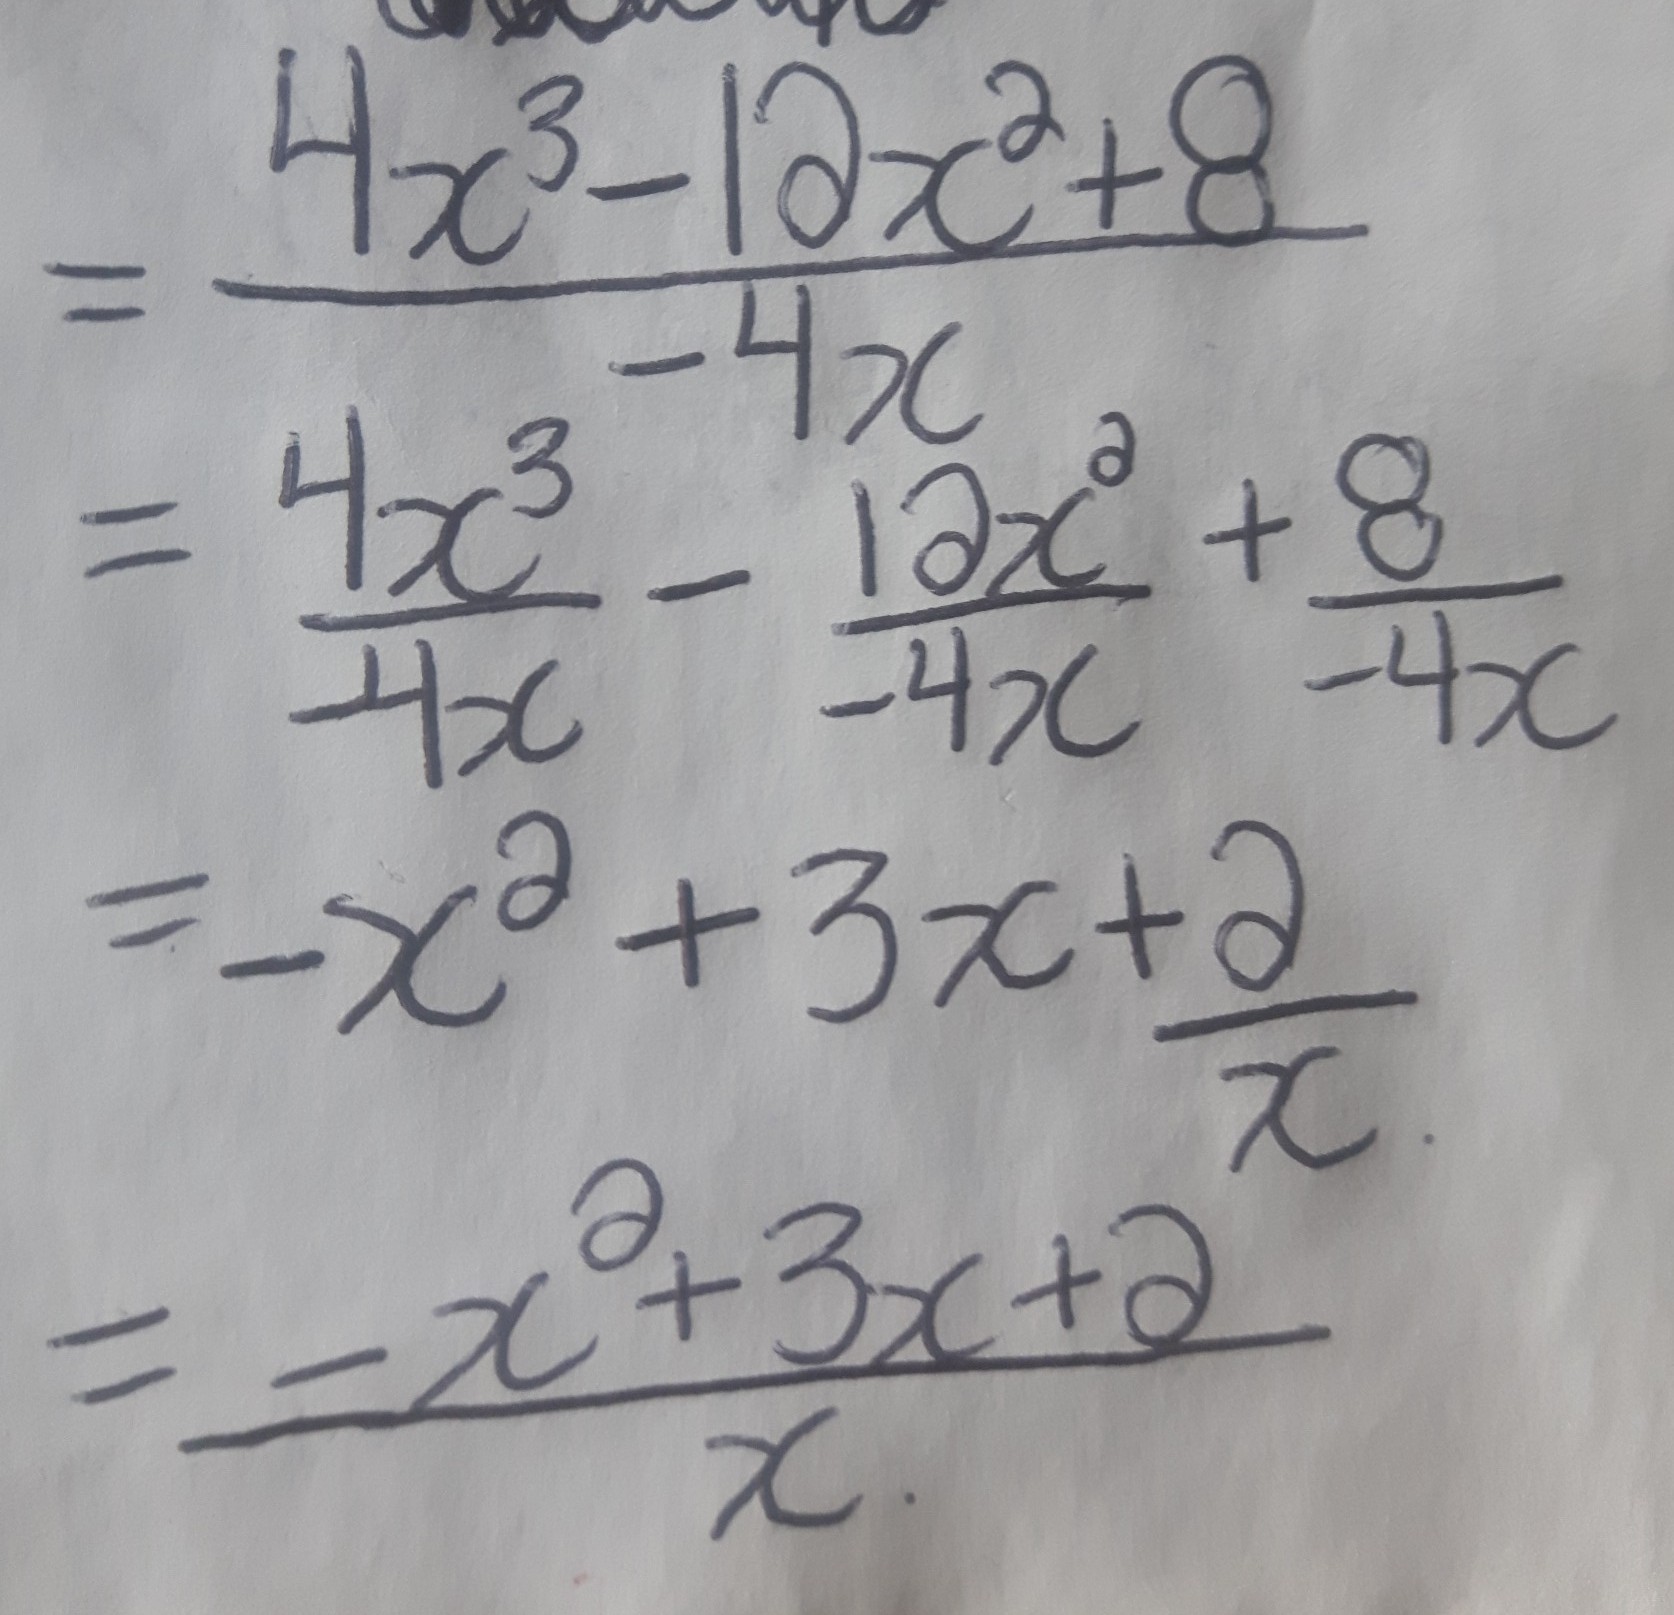 = (4x³ - 12x² + 8) / (-4x)
= 4x³/-4x - 12x²/-4x + 8/-4x
= -x² + 3x + 2/x.
= (-x² + 3x + 2) / x.